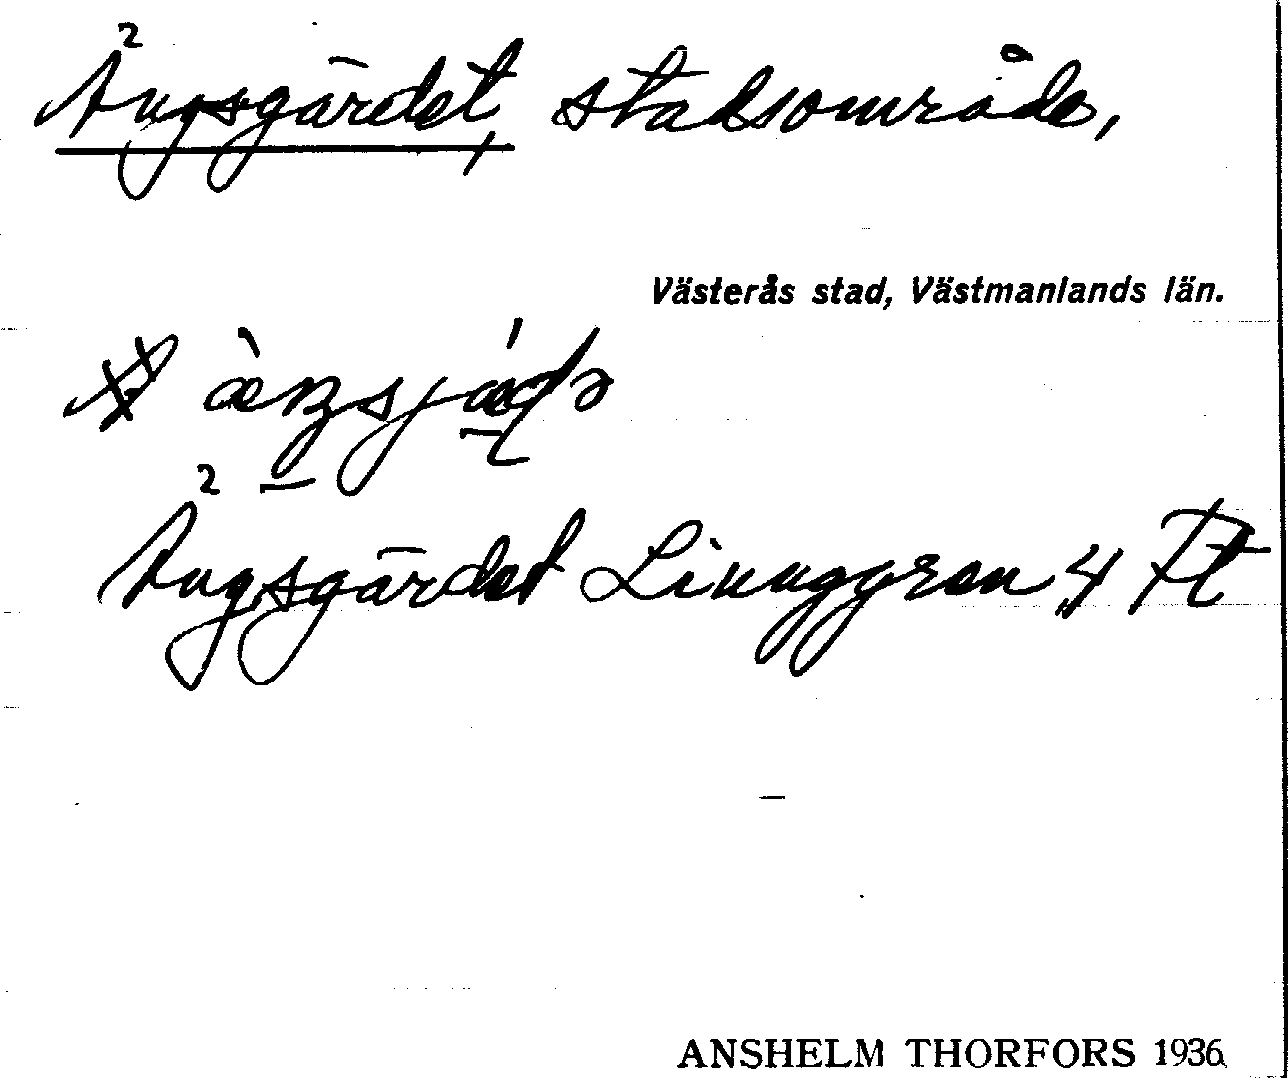 Ängsgärdet, stadsområde,
Västerås stad, Västmanlands län.
Ängsgärdet Linnggren 4
ANSHELM THORFORS 1936.